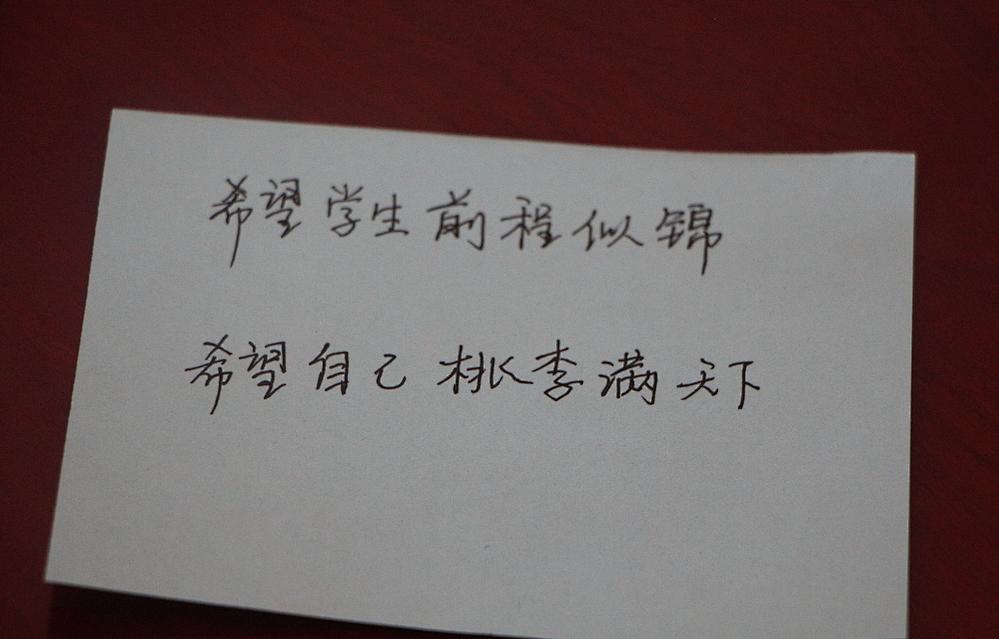 希望学生前程似锦
希望自己桃李满天下